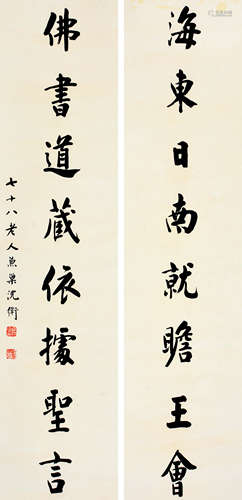 海東日南就瞻王會
佛書道藏依據聖言
七十八老人魚巢沈衛